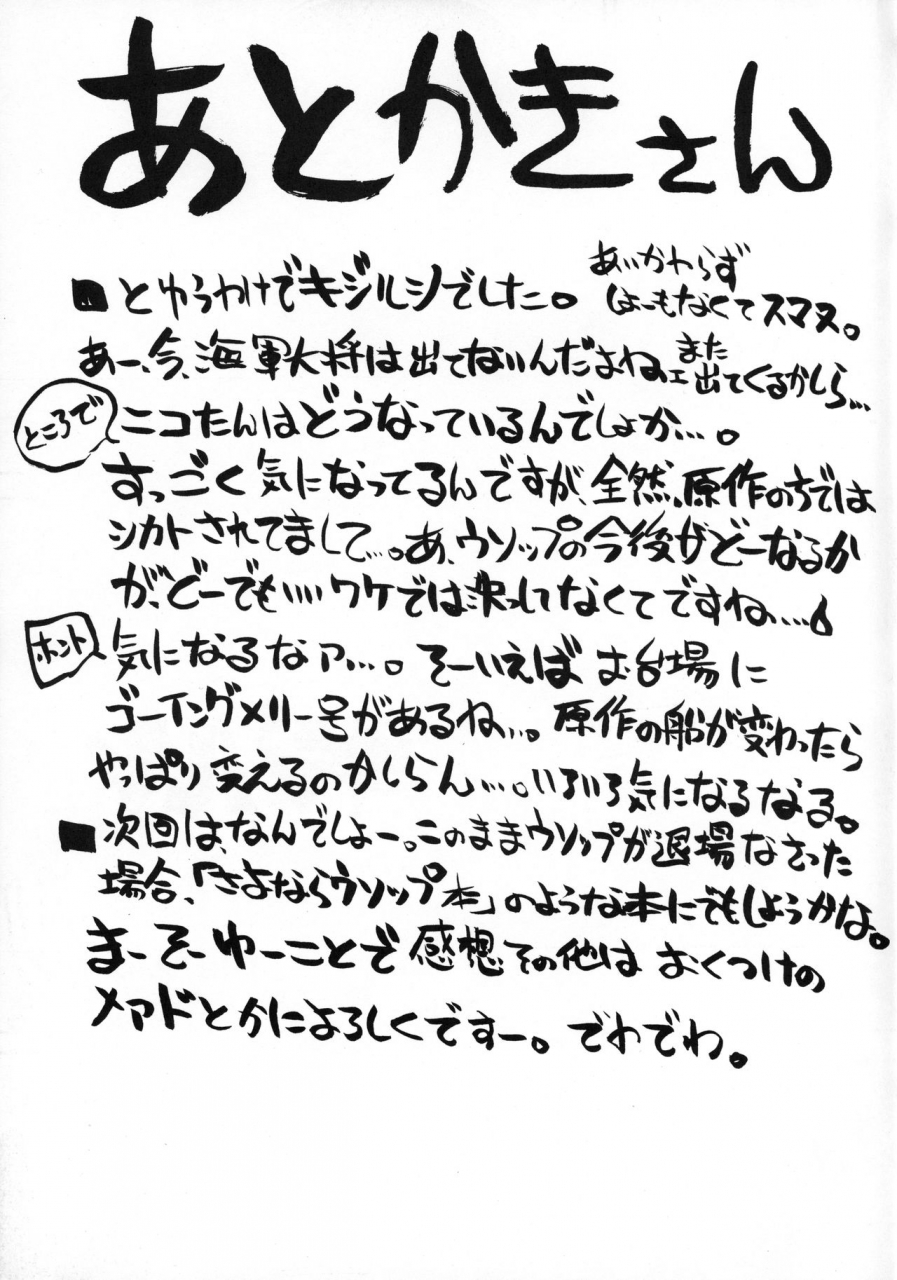 あとかきさん
■とゆうわけでキジルシでした。
あいかわらず
しょーもなくてスマヌ。
あー、今、海軍大将は出てないんだよね、また出てくるかしら…
ところで
ニコたんはどうなっているんでしょか…。
すっごく気になってるんですが、全然、原作の方では
シカトされてまして…。あ、ウソップの今後がどーなるか
が、どーでもいいワケでは決ってなくてですね…
ホント
気になるなァ…。そーいえばお台場に
ゴーイングメリー号があるね…。原作の船が変わったら
やっぱり変えるのかしらん…。いろいろ気になるなる。
■次回は、なんでしょー。このままウソップが退場なさった
場合、「さよならウソップ本」のような本にでもしようかな。
まーそーゆーことで感想その他はおくつけの
メアドとかによろしくですー。でわでわ。